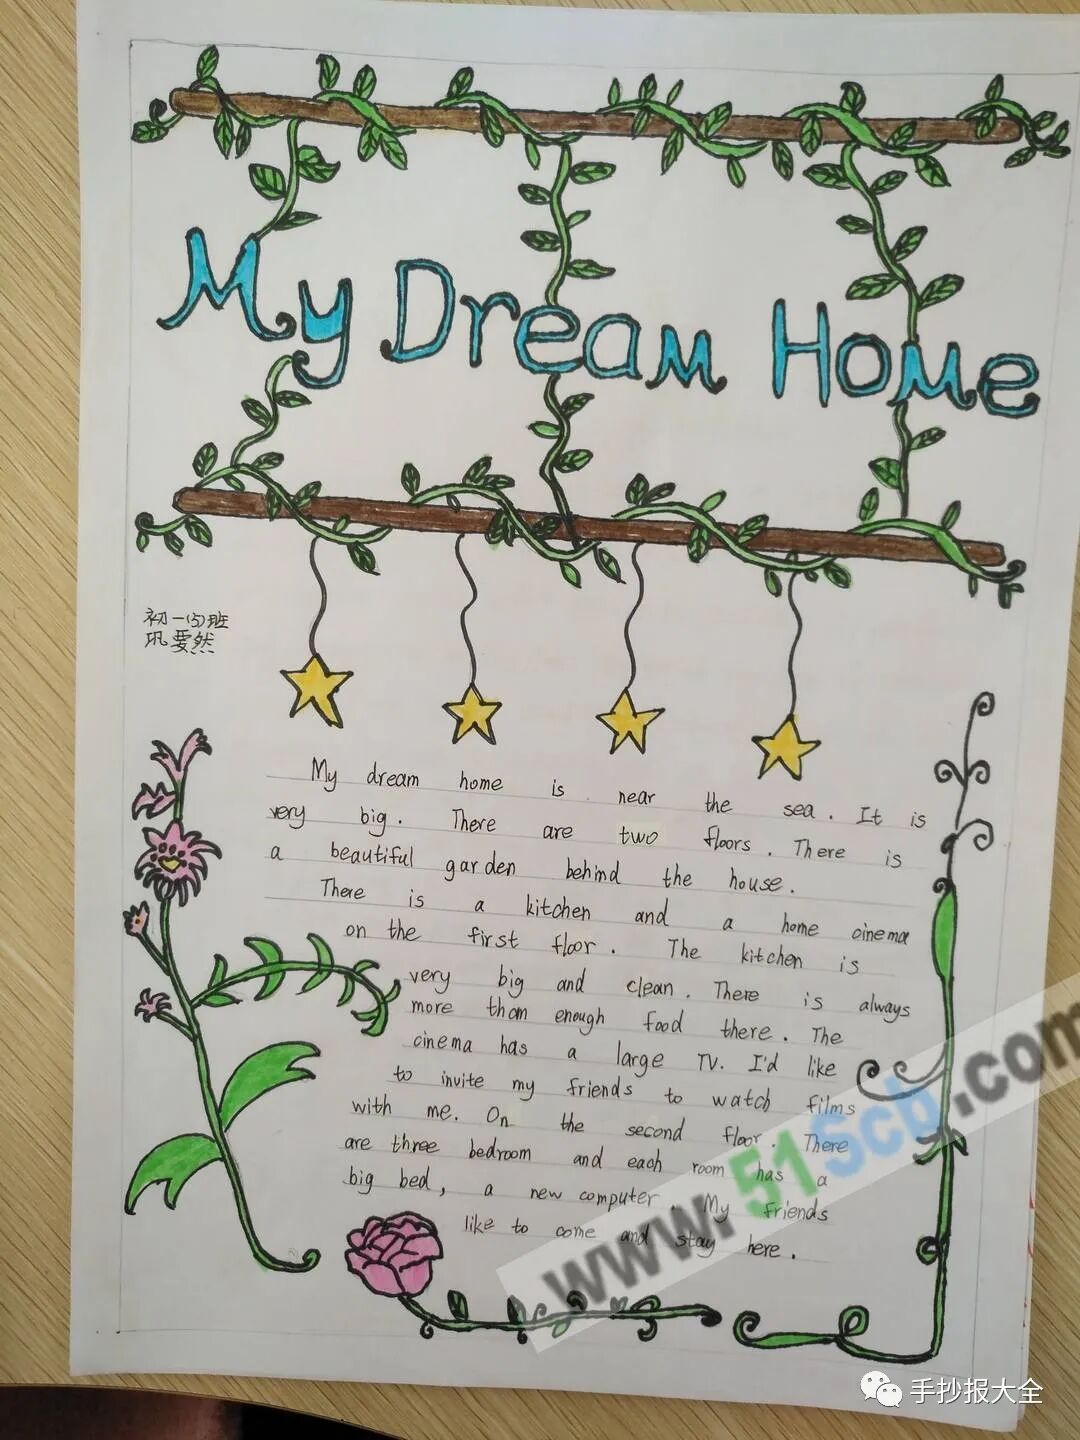 My Dream Home
初一(5)班
巩要然
My dream home is near the sea. It is
very big. There are two floors. There is
a beautiful garden behind the house.
There is a kitchen and a home cinema
on the first floor. The kitchen is
very big and clean. There is always
more than enough food there. The
cinema has a large TV. I'd like
to invite my friends to watch films
with me. On the second floor. There
are three bedroom and each room has a
big bed, a new computer. My friends
like to come and stay here.
www.51Scb.com
手抄报大全